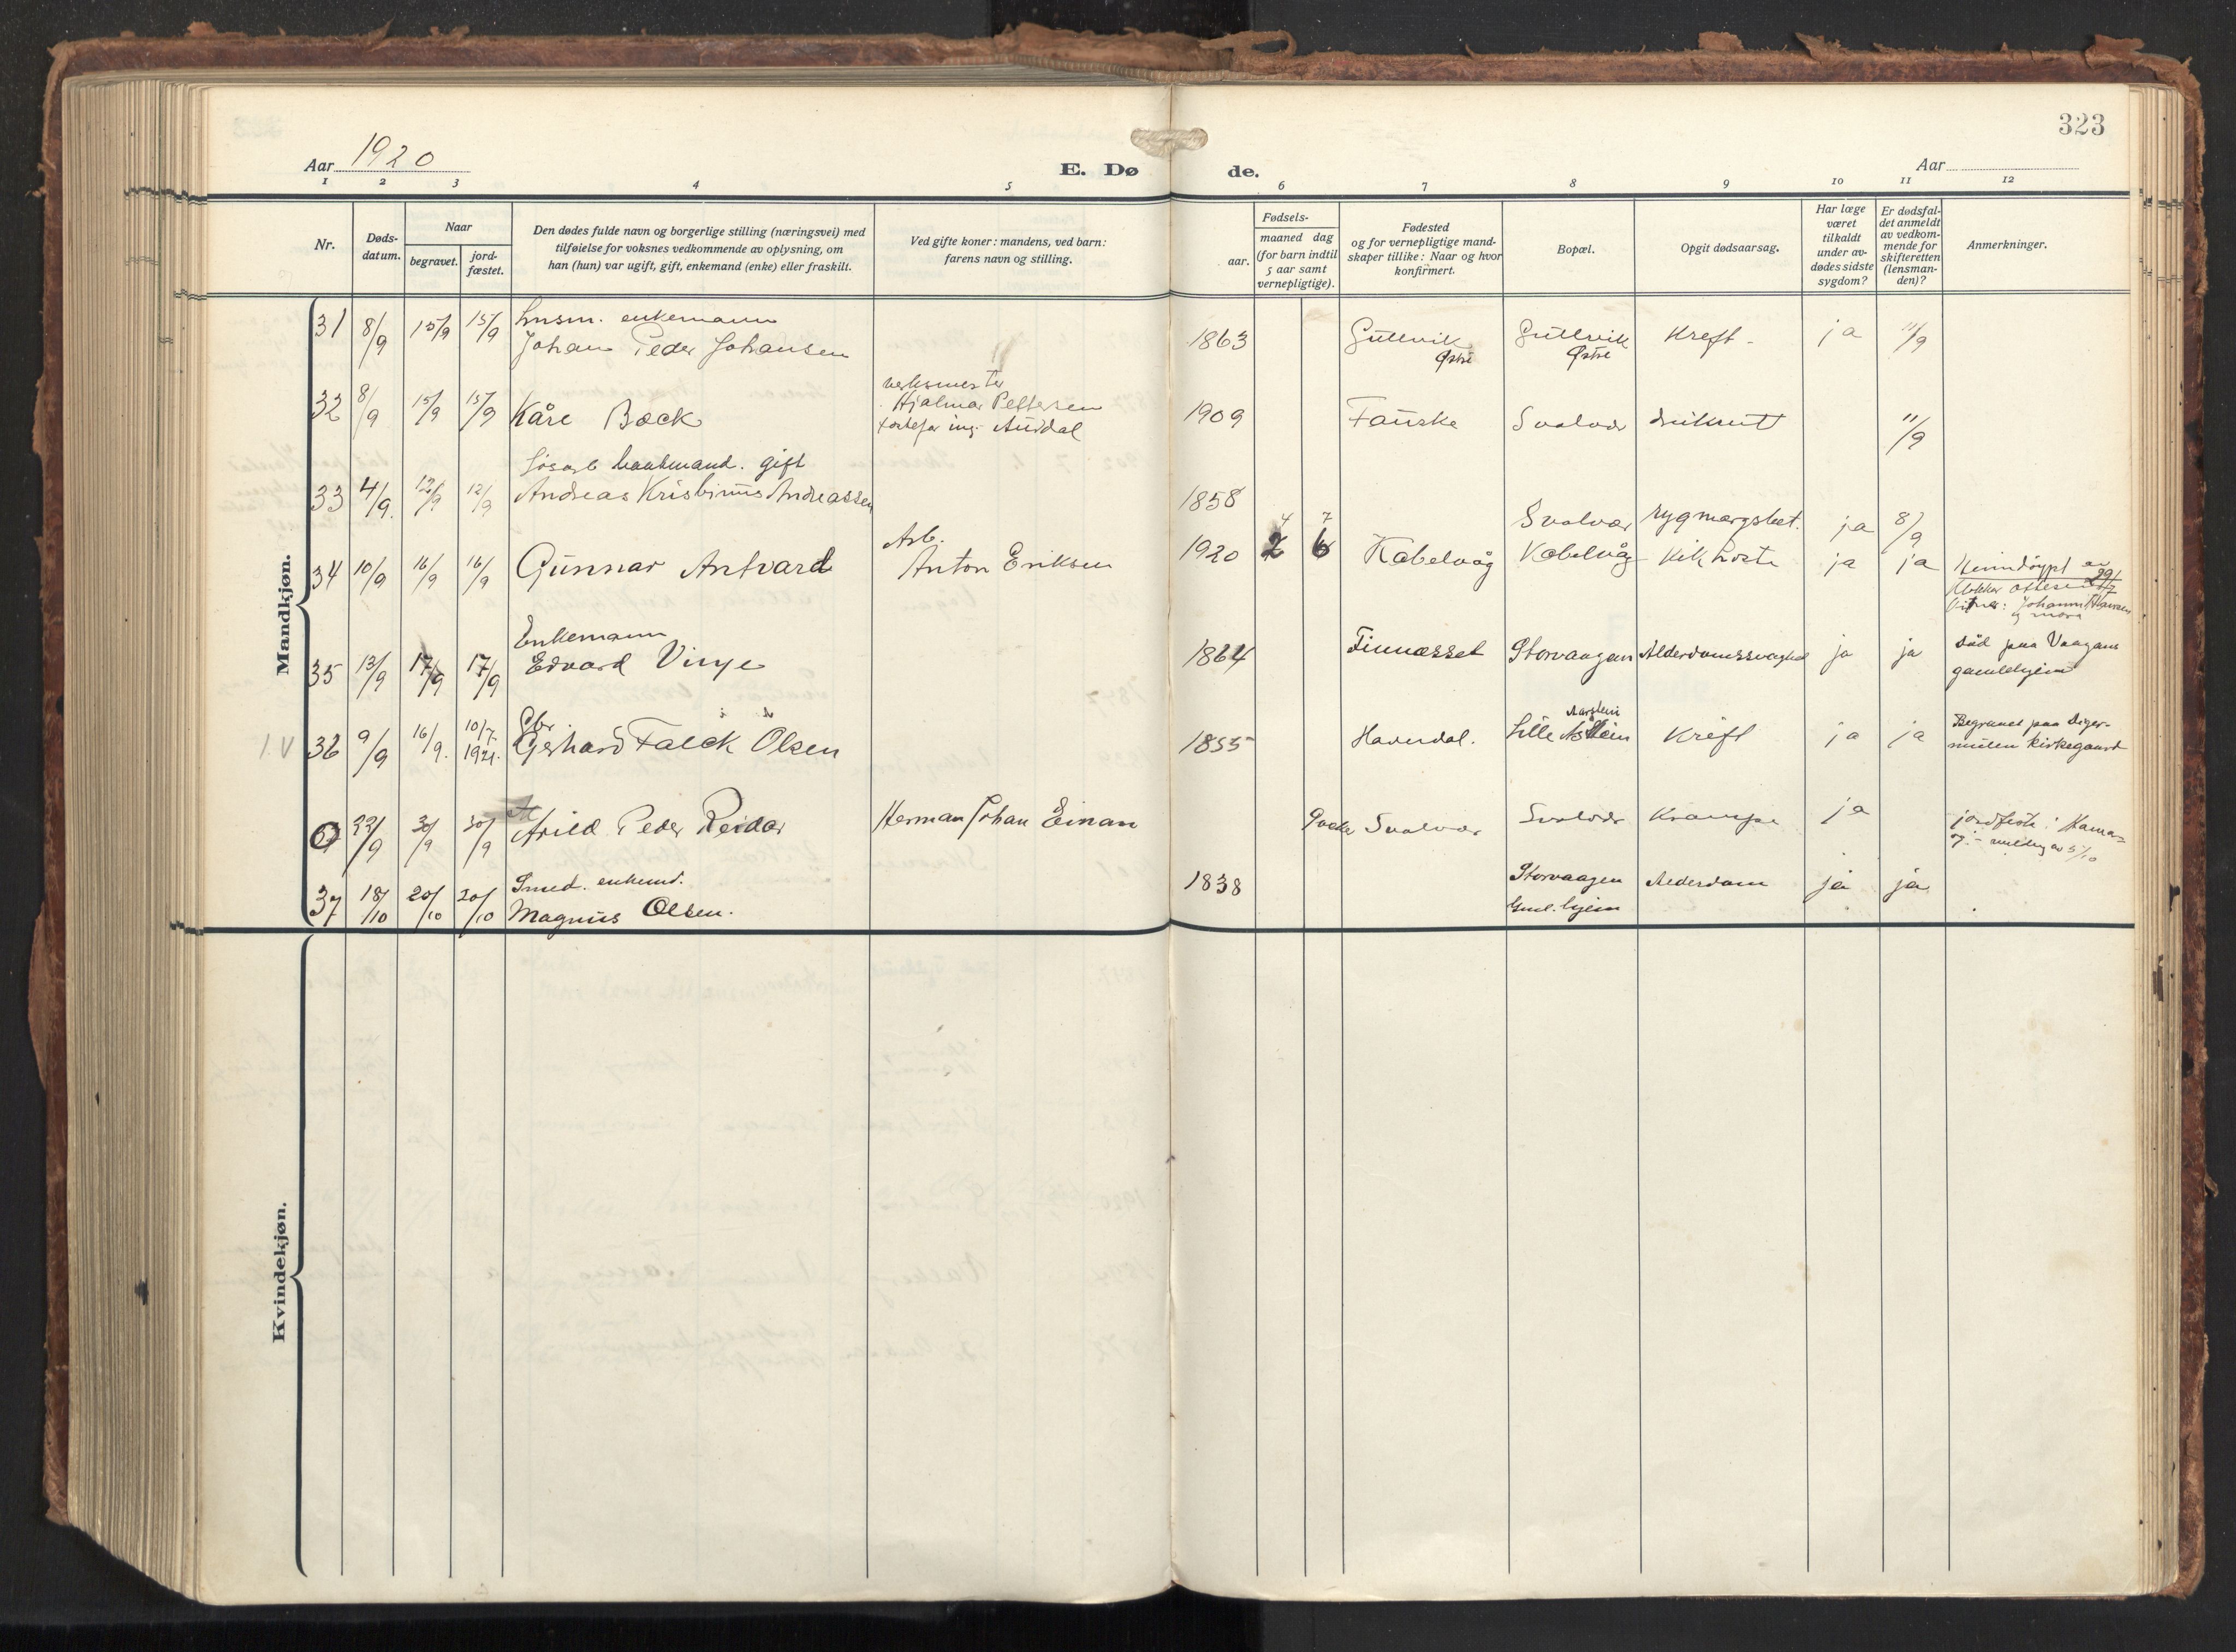 323
Aar 1920
E. Dø
de.
Aar
1 2 3 4 5 6 7 8 9 10 11 12
Nr.
Døds-
datum.
Naar
begravet.
jord-
fæstet.
Den dødes fulde navn og borgerlige stilling (næringsvei) med
tilføielse for voksnes vedkommende av oplysning, om
han (hun) var ugift, gift, enkemand (enke) eller fraskilt.
Ved gifte koner: mandens, ved barn:
farens navn og stilling.
Fødsels-
aar.
maaned dag
(for barn indtil
5 aar samt
vernepligtige).
Fødested
og for vernepligtige mand-
skaper tillike: Naar og hvor
konfirmert.
Bopæl.
Opgit dødsaarsag.
Har læge
været
tilkaldt
under av-
dødes sidste
sygdom?
Er dødsfal-
det anmeldt
av vedkom-
mende for
skifteretten
(lensman-
den)?
Anmerkninger.
Mandkjøn.
enkemann
31 8/9 15/9 15/9 Johan Peder Johansen 1863 Gullvik Gullvik Kreft - ja 11/9
Østre Østre
Hjalmar Pettersen
32 8/9 15/9 15/9 Kåre Bock 1909 Fauske Svolvær 11/9
gift
33 4/9. 12/9 12/9 Andreas Andreassen 1858 Svolvær ja 8/9
4 7
Arb.
34 10/9 16/9 16/9 Gunnar Antvard Anton Eriksen 1920 2 6 Kabelvåg Kabelvåg Kikhoste ja ja Hjemdøypt av
29/7
Enkemann
35 13/9 17/9 17/9 Edvard Vinje 1864 Finnæsset Storvaagen ja ja Død paa Vaagans
gamlehjem
Aarstein
1.V 36 9/9 16/9. 10/7. 1921. Gerhard Falck Olsen 1855 Haverdal. Lille Kreft ja ja Begravet paa Diger-
mulen Kirkegaard
22/9 30/9 30/9 Arild Peder Reidar Herman Johan Einan Svolvær Svolvær Krampe ja
5/10
Smed. enkemd.
37 18/10 20/10 20/10 Magnus Olsen. 1838 Storvaagen Alderdom ja ja
Gml. hjem
Kvindekjøn.